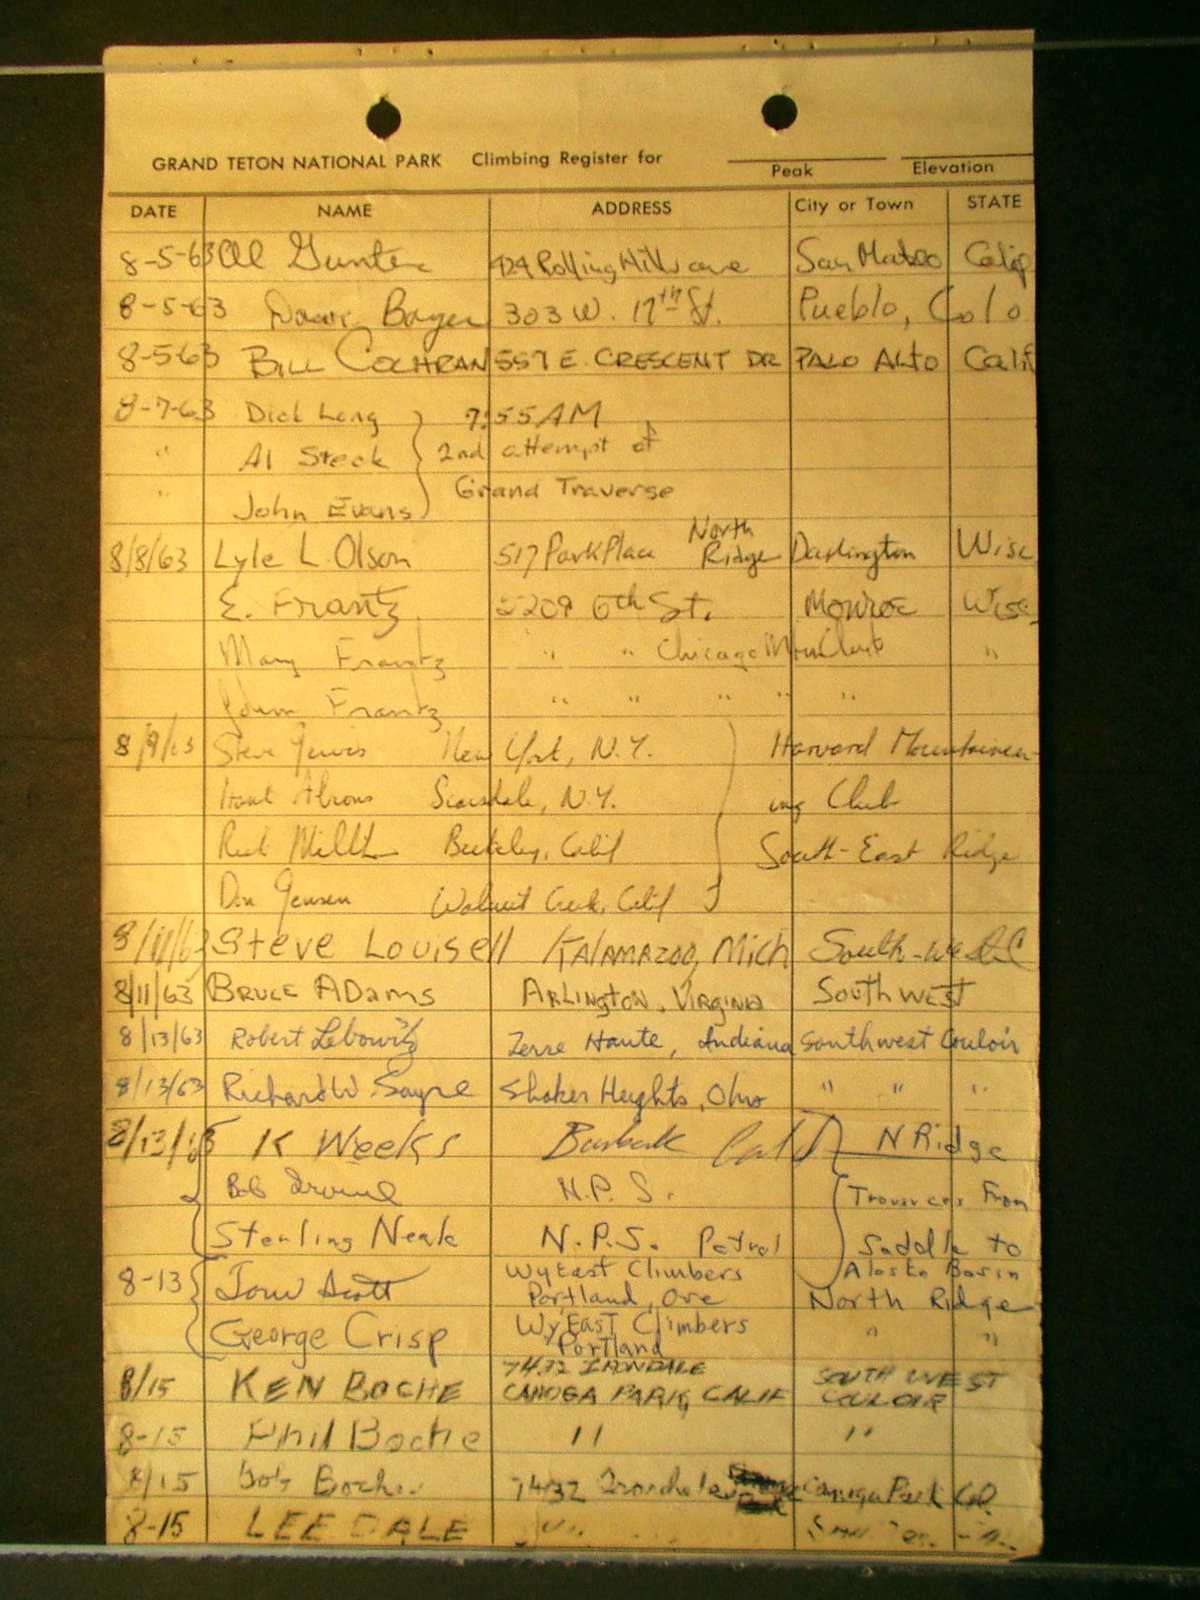 GRAND TETON NATIONAL PARK Climbing Register for
Peak Elevation
DATE NAME ADDRESS City or Town STATE
8-5-63 Al Gunter 424 Rolling Hills ave San Mateo Calif
8-5-63 Boyer 303 W. 17th St. Pueblo, Colo
8-5-63 BILL COCHRAN 557 E. CRESCENT DR PALO ALTO Calif
8-7-63 Dick Long 7:55 AM
" Al Steck 2nd attempt of
" John Evans Grand Traverse
8/8/63 Lyle L. Olson 517 Park Place North Ridge Darlington Wisc
E. Frantz 2209 6th St. Monroe Wisc
Mary Frantz " " Chicago Moun Club "
Frantz " " " " "
8/9/63 Steve New York, N.Y. Harvard Mountaineer-
Scarsdale, N.Y. ing Club
Berkeley, Calif South-East Ridge
Don Jensen Walnut Creek, Calif
8/11/63 Steve Louisell KALAMAZOO, Mich
8/11/63 BRUCE ADAMS ARLINGTON, VIRGINIA SOUTHWEST
8/13/63 Robert Lebowitz Terre Haute, Indiana Southwest Couloir
8/13/63 Richard W. Sayre Shaker Heights, Ohio " " "
8/13/63 K Weeks Burbank Calif N Ridge
Bob Irvine N.P.S. Traverse From
Sterling Neale N.P.S. Patrol Saddle to
Alaska Basin
8-13 Tom Scott WyEast Climbers Portland, Ore North Ridge
George Crisp WyEast Climbers Portland " "
8/15 KEN BOCHE 7432 IRONDALE CANOGA PARK, CALIF SOUTH WEST COULOIR
8-15 Phil Boche " "
8/15 Bob Boche 7432 Irondale Canoga Park
8-15 LEE DALE